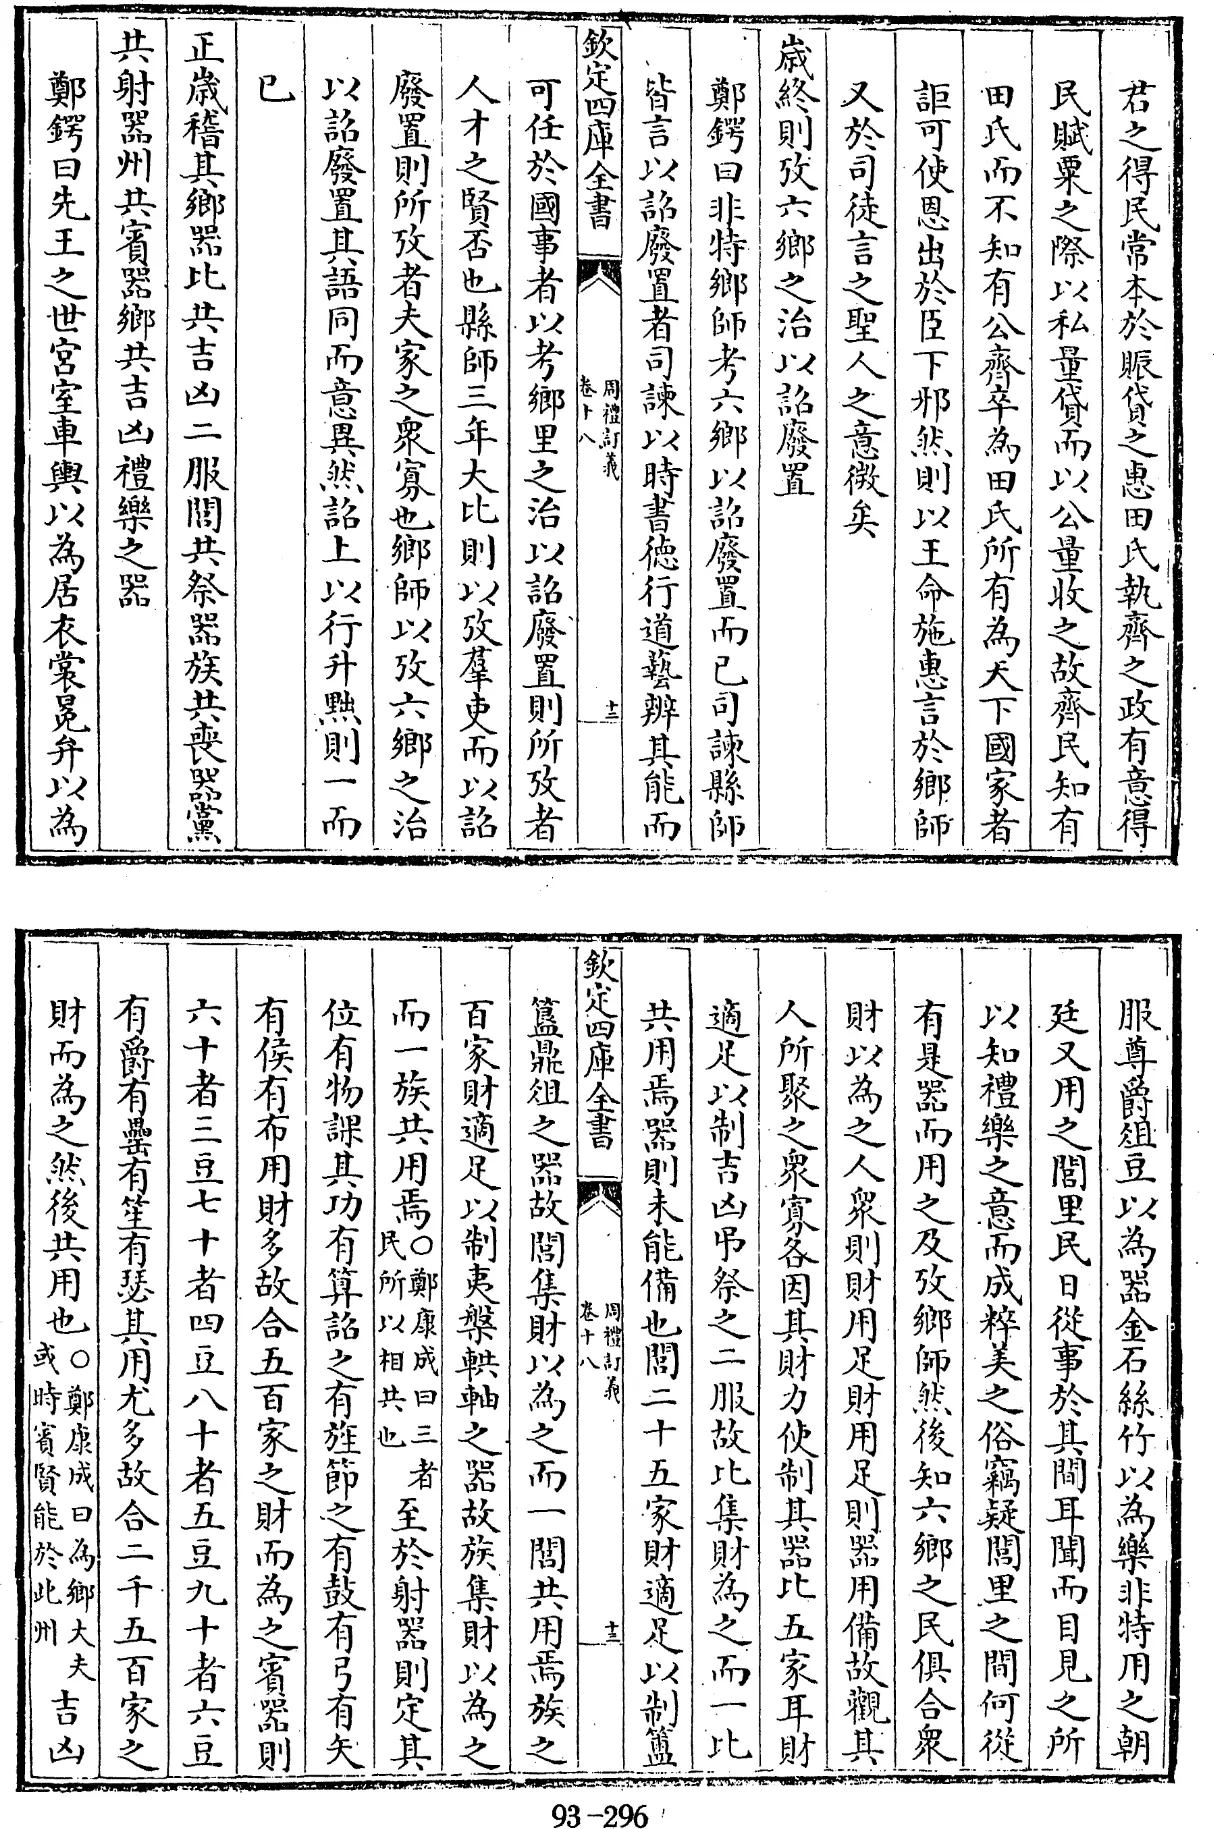 君之得民常本於賑貸之惠田氏執齊之政有意得
民賦粟之際以私量貸而以公量收之故齊民知有
田氏而不知有公齊卒為田氏所有為天下國家者
詎可使恩出於臣下邪然則以王命施惠言於鄉師
又於司徒言之聖人之意微矣
歳終則攷六鄉之治以詔廢置
鄭鍔曰非特鄉師考六鄉以詔廢置而已司諫縣師
皆言以詔廢置者司諫以時書徳行道藝辨其能而
欽定四庫全書
周禮訂義
卷十八
十二
可任於國事者以考鄉里之治以詔廢置則所攷者
人才之賢否也縣師三年大比則以攷羣吏而以詔
廢置則所攷者夫家之衆寡也鄉師以攷六鄉之治
以詔廢置其語同而意異然詔上以行升黜則一而
已
正歳稽其鄉器比共吉凶二服閭共祭器族共喪器黨
共射器州共賓器鄉共吉凶禮樂之器
鄭鍔曰先王之世宮室車輿以為居衣裳冕弁以為
服尊爵俎豆以為器金石絲竹以為樂非特用之朝
廷又用之閭里民日從事於其間耳聞而目見之所
以知禮樂之意而成粹美之俗竊疑閭里之間何從
有是器而用之及攷鄉師然後知六鄉之民俱合衆
財以為之人衆則財用足財用足則器用備故觀其
人所聚之衆寡各因其財力使制其器比五家耳財
適足以制吉凶弔祭之二服故比集財為之而一比
共用焉器則未能備也閭二十五家財適足以制簠
欽定四庫全書
周禮訂義
卷十八
十三
簋鼎俎之器故閭集財以為之而一閭共用焉族之
百家財適足以制夷槃輁軸之器故族集財以為之
而一族共用焉○鄭康成曰三者民所以相共也至於射器則定其
位有物課其功有算詔之有旌節之有鼓有弓有矢
有侯有布用財多故合五百家之財而為之賓器則
六十者三豆七十者四豆八十者五豆九十者六豆
有爵有罍有笙有瑟其用尤多故合二千五百家之
財而為之然後共用也○鄭康成曰為鄉大夫或時賓賢能於此州吉凶
93-296